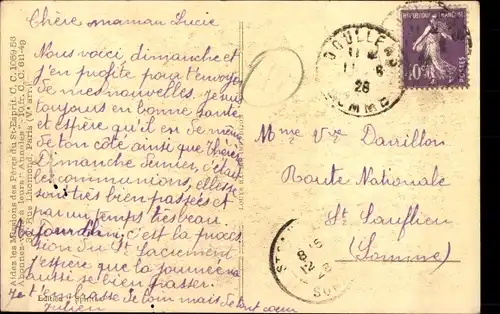 Chère maman Lucie
Nous voici dimanche et
j'en profite pour t'envoyer
de mes nouvelles. Je suis
toujours en bonne santé
et espère qu'il en de même
de ton côté ainsi que
dimanche dernier, c'était
les communions, elles se
sont très bien passées et
par un temps très beau.
Aujourd'hui, c'est la proces
sion du St Sacrement
j'espère que la journée va
aussi se bien passer.
Je t'embrasse de loin mais de tout cœur
Julien
Aidez les Missions des Pères du St-Esprit C. C. 1069-58
Abonnez-vous à leurs "Annales" 10 fr. C. C. 611-49
30 Rue Lhomond, Paris (Ve arrt)
DOULLENS
11-6
26
SOMME
REPUBLIQUE FRANÇAISE
POSTES
Mme Vve Davillon
Route Nationale
St Sauflieu
(Somme)
12-6